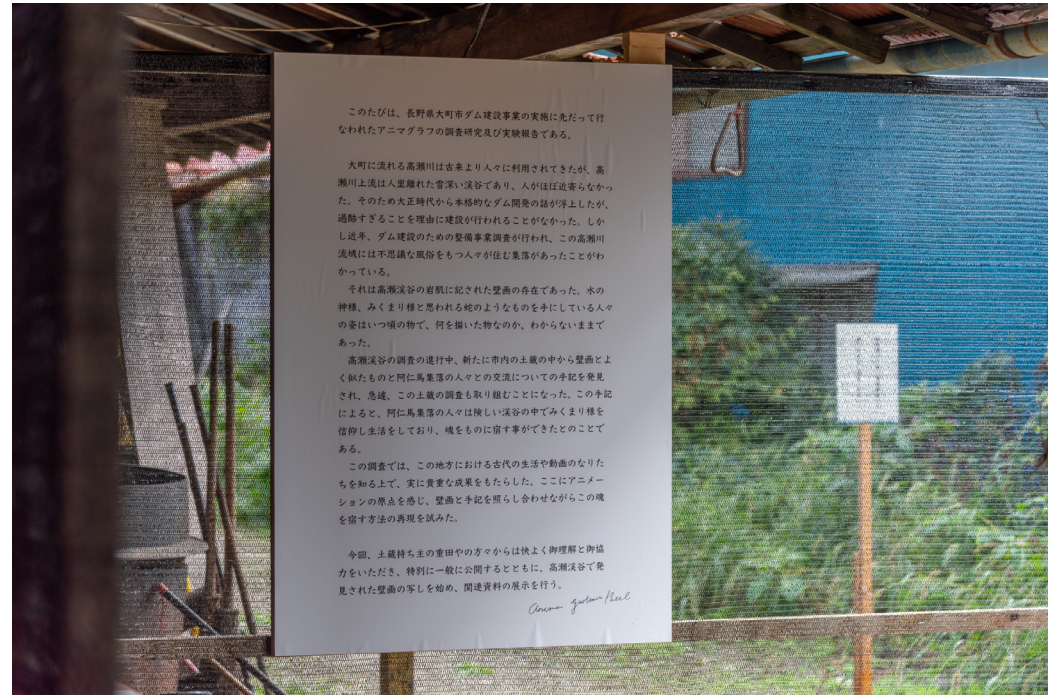 このたびは、長野県大町市ダム建設事業の実施に先だって行
なわれたアニマグラフの調査研究及び実験報告である。
大町に流れる高瀬川は古来より人々に利用されてきたが、高
瀬川上流は人里離れた雪深い渓谷であり、人がほぼ近寄らなかっ
た。そのため大正時代から本格的なダム開発の話が浮上したが、
過酷すぎることを理由に建設が行われることがなかった。しか
し近年、ダム建設のための整備事業調査が行われ、この高瀬川
流域には不思議な風俗をもつ人々が住む集落があったことがわ
かっている。
それは高瀬渓谷の岩肌に記された壁画の存在であった。水の
神様、みくまり様と思われる蛇のようなものを手にしている人々
の姿はいつ頃の物で、何を描いた物なのか、わからないままで
あった。
高瀬渓谷の調査の進行中、新たに市内の土蔵の中から壁画とよ
く似たものと阿仁馬集落の人々との交流についての手記を発見
され、急遽、この土蔵の調査も取り組むことになった。この手記
によると、阿仁馬集落の人々は険しい渓谷の中でみくまり様を
信仰し生活をしており、魂をものに宿す事ができたとのことで
ある。
この調査では、この地方における古代の生活や動画のなりた
ちを知る上で、実に貴重な成果をもたらした。ここにアニメー
ションの原点を感じ、壁画と手記を照らし合わせながらこの魂
を宿す方法の再現を試みた。
今回、土蔵持ち主の重田やの方々からは快よく御理解と御協
力をいただき、特別に一般に公開するとともに、高瀬渓谷で発
見された壁画の写しを始め、関連資料の展示を行う。